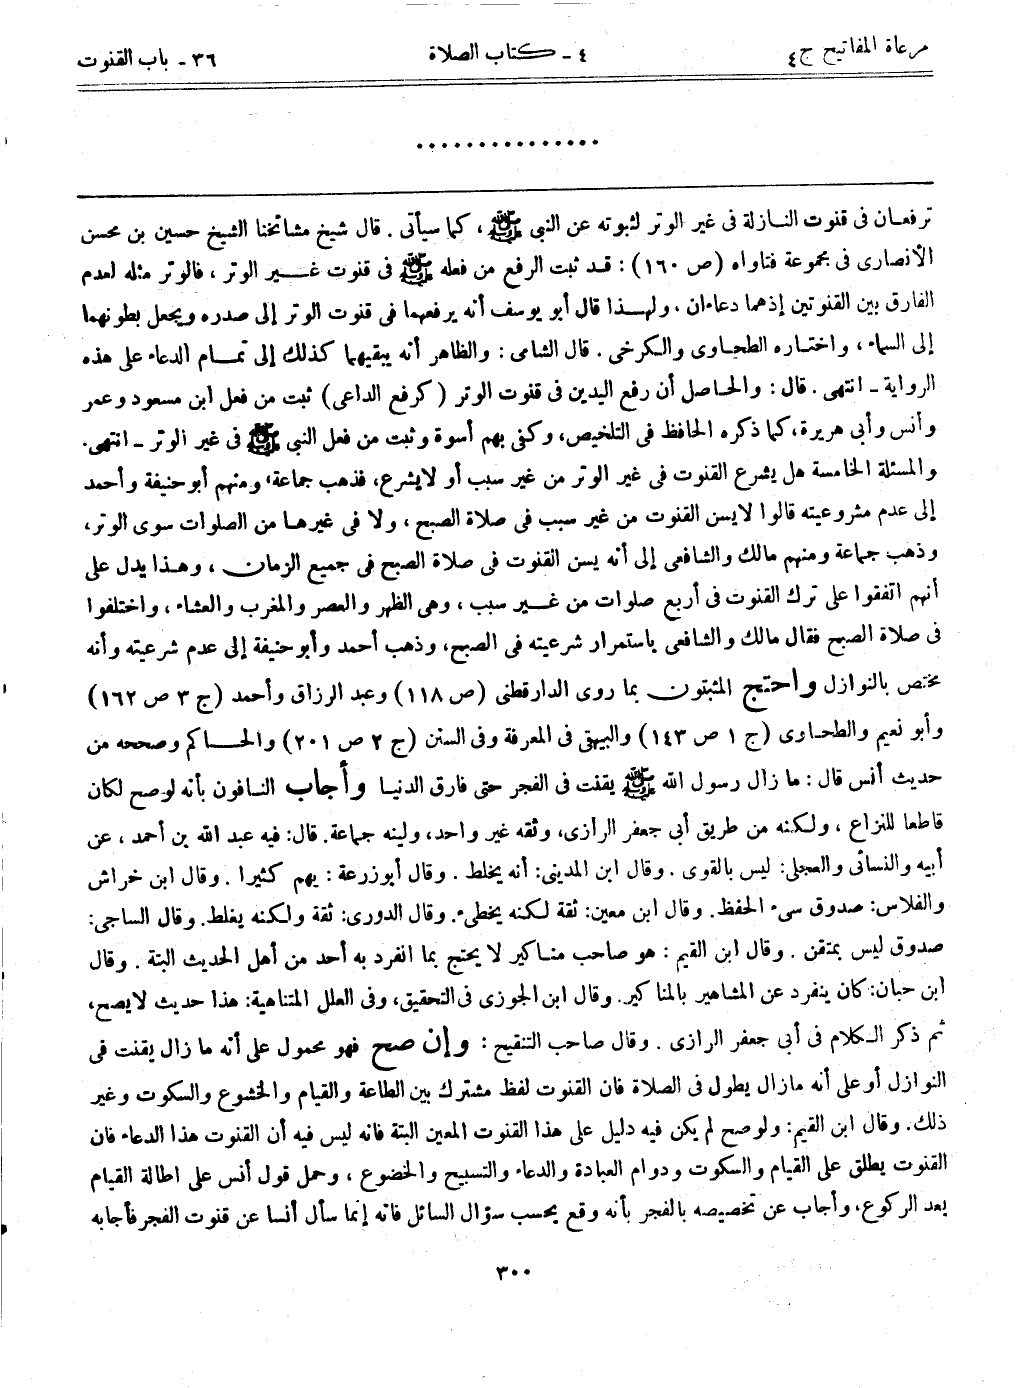 مرعاة المفاتيح ج ٤
٤ - كتاب الصلاة
٣٦ - باب القنوت
ترفعان فى قنوت النازلة فى غير الوتر لثبوته عن النبى ﷺ ، كما سيأتى . قال شيخ مشائخنا الشيخ حسين بن محسن
الأنصارى فى مجموعة فتاواه (ص ١٦٠) : قد ثبت الرفع من فعله ﷺ فى قنوت غير الوتر ، فالوتر مثله لعدم
الفارق بين القنوتين إذهما دعاءان . ولهذا قال أبو يوسف أنه يرفعهما فى قنوت الوتر إلى صدره ويجعل بطونهما
إلى السماء ، واختاره الطحاوى والكرخى . قال الشامى : والظاهر أنه يبقيهما كذلك إلى تمام الدعاء على هذه
الرواية - انتهى . قال : والحاصل أن رفع اليدين فى قنوت الوتر ( كرفع الداعى ) ثبت من فعل ابن مسعود وعمر
وأنس وأبى هريرة، كما ذكره الحافظ فى التلخيص، وكفى بهم أسوة وثبت من فعل النبى ﷺ فى غير الوتر - انتهى.
والمسئلة الخامسة هل يشرع القنوت فى غير الوتر من غير سبب أو لايشرع، فذهب جماعة، ومنهم أبوحنيفة وأحمد
إلى عدم مشروعيته قالوا لايسن القنوت من غير سبب فى صلاة الصبح ، ولا فى غيرها من الصلوات سوى الوتر،
وذهب جماعة ومنهم مالك والشافعى إلى أنه يسن القنوت فى صلاة الصبح فى جميع الزمان ، وهذا يدل على
أنهم اتفقوا على ترك القنوت فى أربع صلوات من غير سبب ، وهى الظهر والعصر والمغرب والعشاء ، واختلفوا
فى صلاة الصبح فقال مالك والشافعى باستمرار شرعيته فى الصبح، وذهب أحمد وأبوحنيفة إلى عدم شرعيته وأنه
مختص بالنوازل واحتج المثبتون بما روى الدارقطنى (ص ١١٨) وعبد الرزاق وأحمد (ج ٣ ص ١٦٢)
وأبو نعيم والطحاوى (ج ١ ص ١٤٣) والبيهقى فى المعرفة وفى السنن (ج ٢ ص ٢٠١) والحاكم وصححه من
حديث أنس قال : ما زال رسول الله ﷺ يقنت فى الفجر حتى فارق الدنيا وأجاب النافون بأنه لوصح لكان
قاطعا للنزاع ، ولكنه من طريق أبى جعفر الرازى، وثقه غير واحد، ولينه جماعة. قال: فيه عبد الله بن أحمد ، عن
أبيه والنسائى والعجلى: ليس بالقوى . وقال ابن المدينى: أنه يخلط . وقال أبوزرعة : يهم كثيرا . وقال ابن خراش
والفلاس: صدوق سىء الحفظ. وقال ابن معين: ثقة لكنه يخطىء. وقال الدورى: ثقة ولكنه يغلط. وقال الساجى:
صدوق ليس بمتقن . وقال ابن القيم : هو صاحب مناكير لا يحتج بما انفرد به أحد من أهل الحديث البتة . وقال
ابن حبان: كان ينفرد عن المشاهير بالمناكير. وقال ابن الجوزى فى التحقيق، وفى العلل المتناهية: هذا حديث لايصح،
ثم ذكر الكلام فى أبى جعفر الرازى . وقال صاحب التنقيح : وإن صح فهو محمول على أنه ما زال يقنت فى
النوازل أو على أنه مازال يطول فى الصلاة فان القنوت لفظ مشترك بين الطاعة والقيام والخشوع والسكوت وغير
ذلك. وقال ابن القيم: ولوصح لم يكن فيه دليل على هذا القنوت المعين البتة فانه ليس فيه أن القنوت هذا الدعاء فان
القنوت يطلق على القيام والسكوت ودوام العبادة والدعاء والتسبيح والخضوع ، وحمل قول أنس على اطالة القيام
بعد الركوع، وأجاب عن تخصيصه بالفجر بأنه وقع بحسب سؤال السائل فانه إنما سأل أنسا عن قنوت الفجر فأجابه
٣٠٠